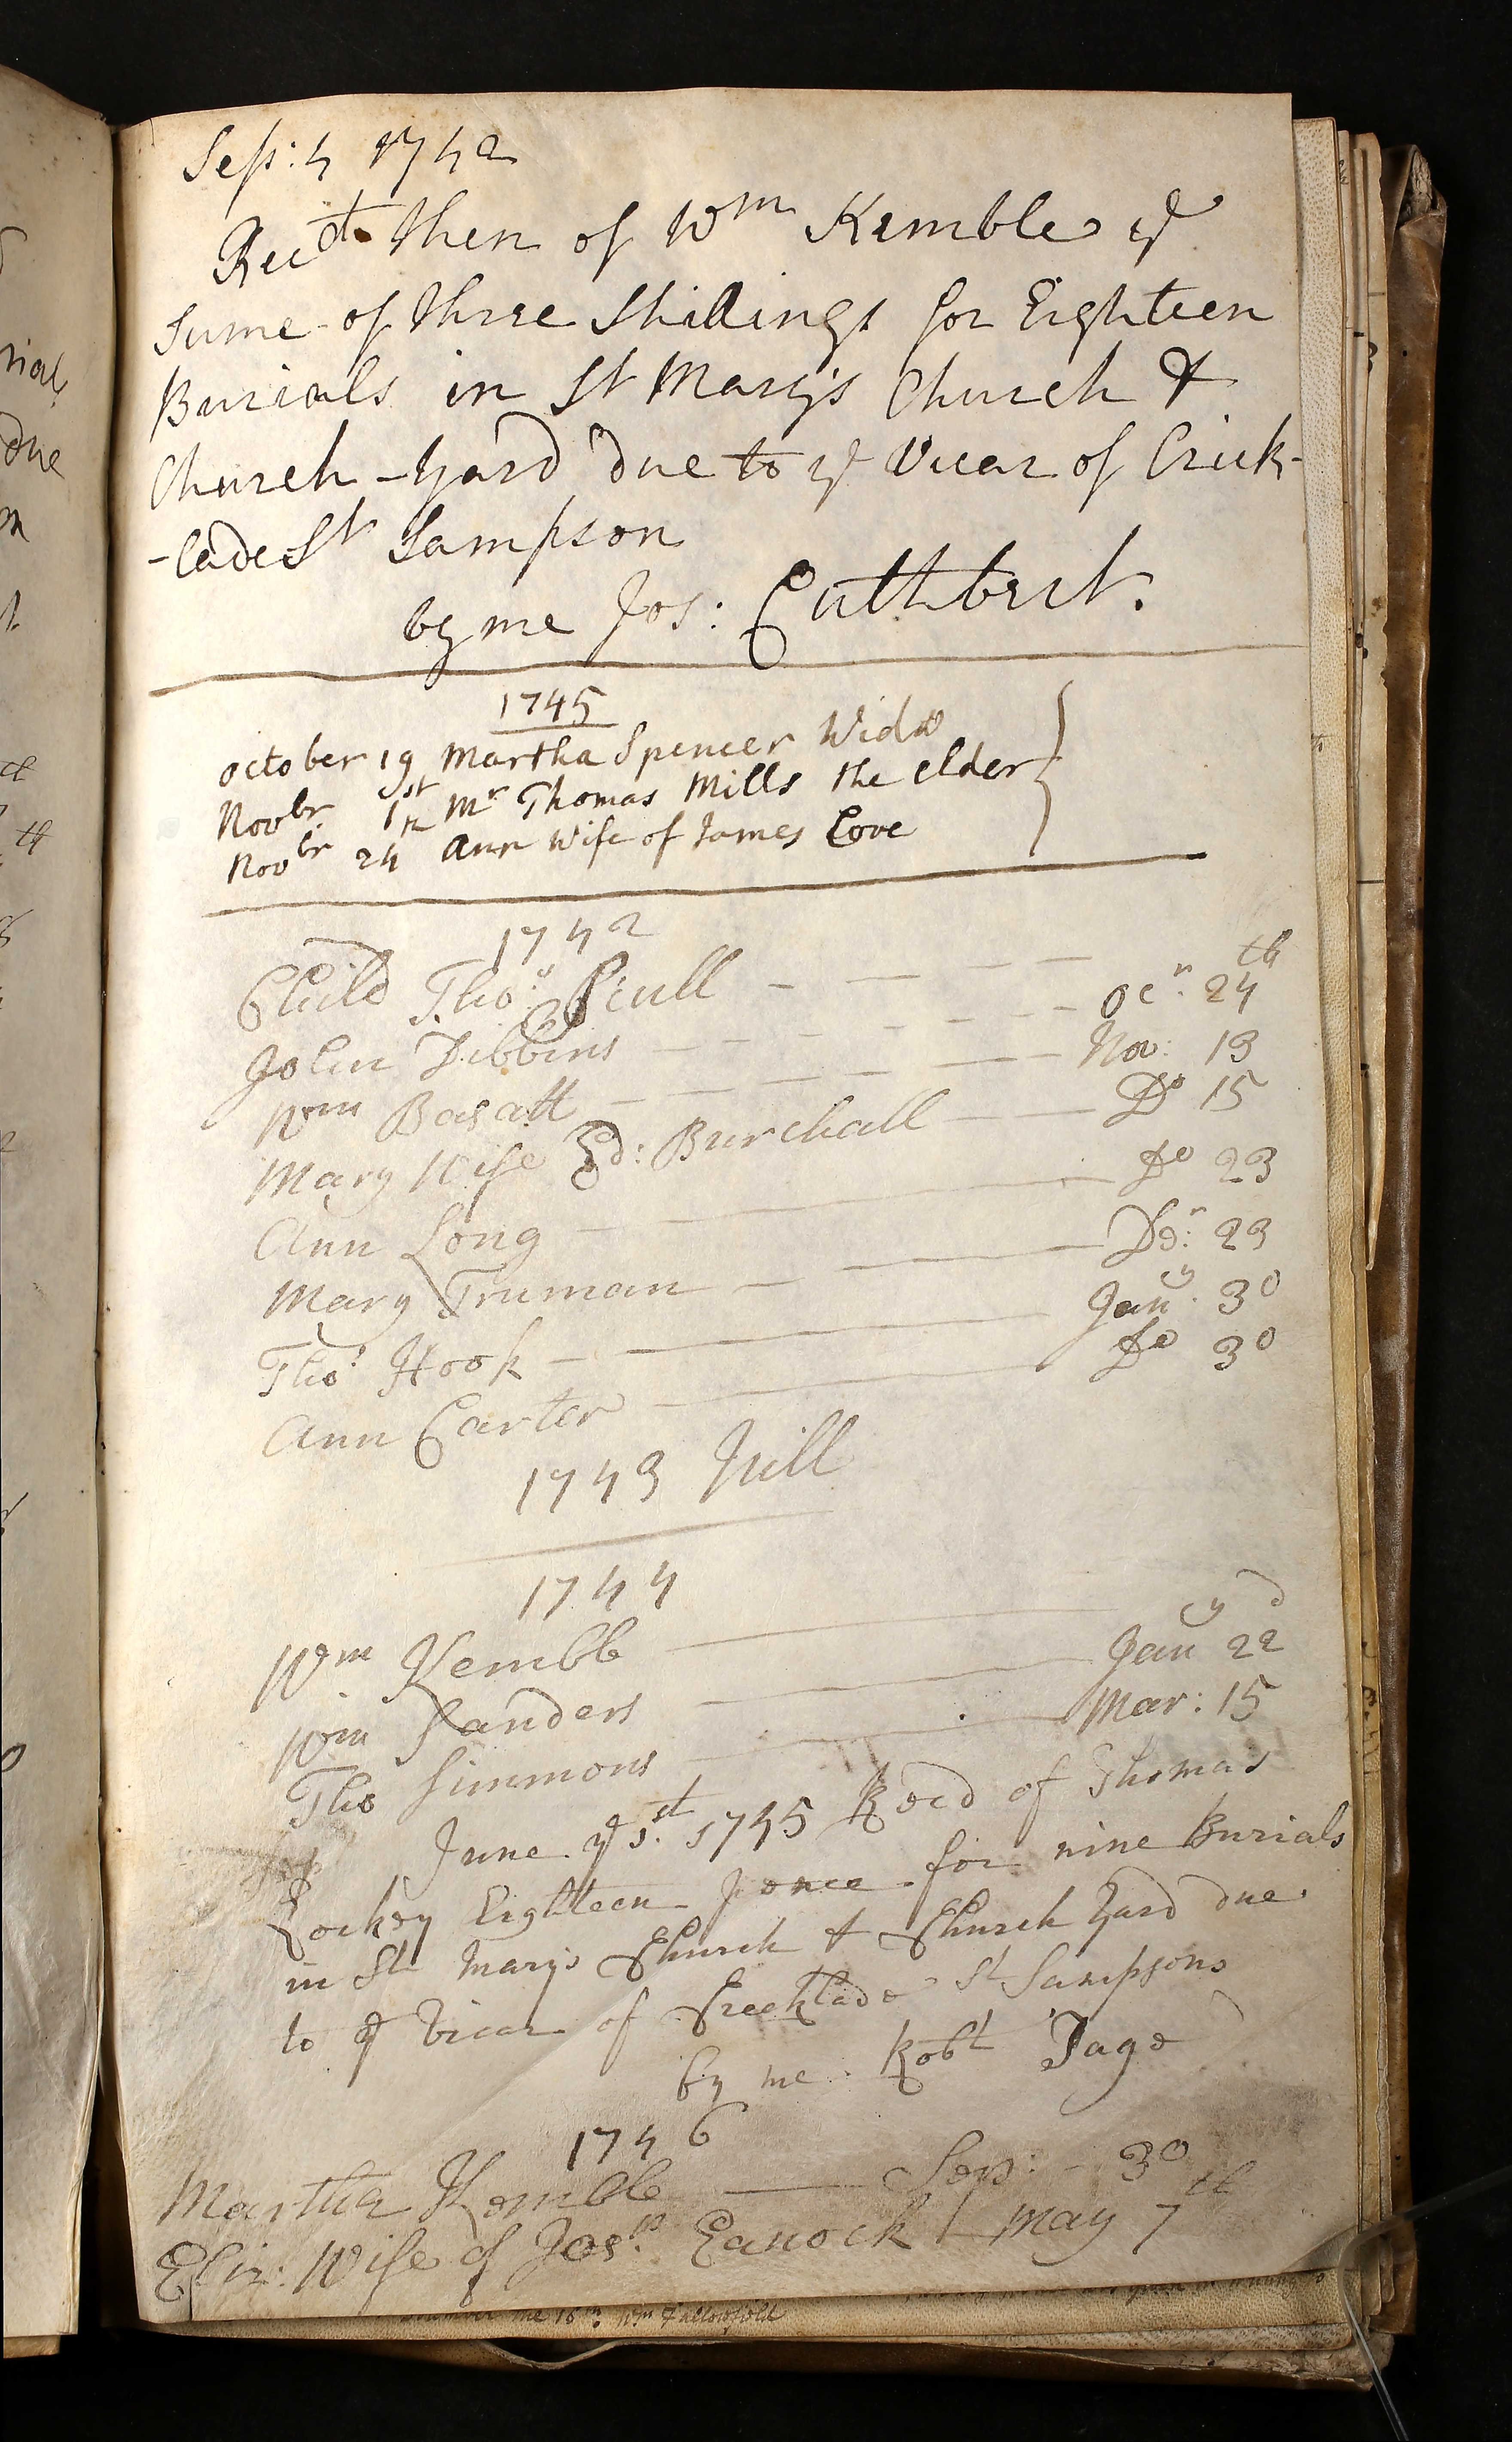 Sep: 4 1742
Recd then of Wm Kemble ye
sume of three Shillings for Eighteen
Burials in St Mary's Church &
Church-yard due to ye Vicar of Crick-
-lade St Sampson
by me Jos: Cuthbert.
1745
October 19 Martha Spencer Widw
Novbr 1st Mr Thomas Mills the elder
Novbr 24th Ann Wife of James Love
1742
Child Thos:
John Dibbins Ocr: 24th
Wm Basatt Nov: 13
Mary Wife Ed: Burchall Do 15
Ann Long Do 23
Mary Truman Dr: 23
Thos: Hook Jany. 30
Ann Carter Do 30
1743 Nill
1744
Wm Kemble
Wm Sanders Jany 22d
Tho Simmons Mar: 15
June ye 1st. 1745 Recd of Thomas
Eighteen pence for nine Burials
in St Mary's Church & Church Yard due
to ye Vicar of Crecklade St Sampsons
by me Robt
1746
Martha Kemble Sep: - 30
Eliz: Wife of Josph: May 7th